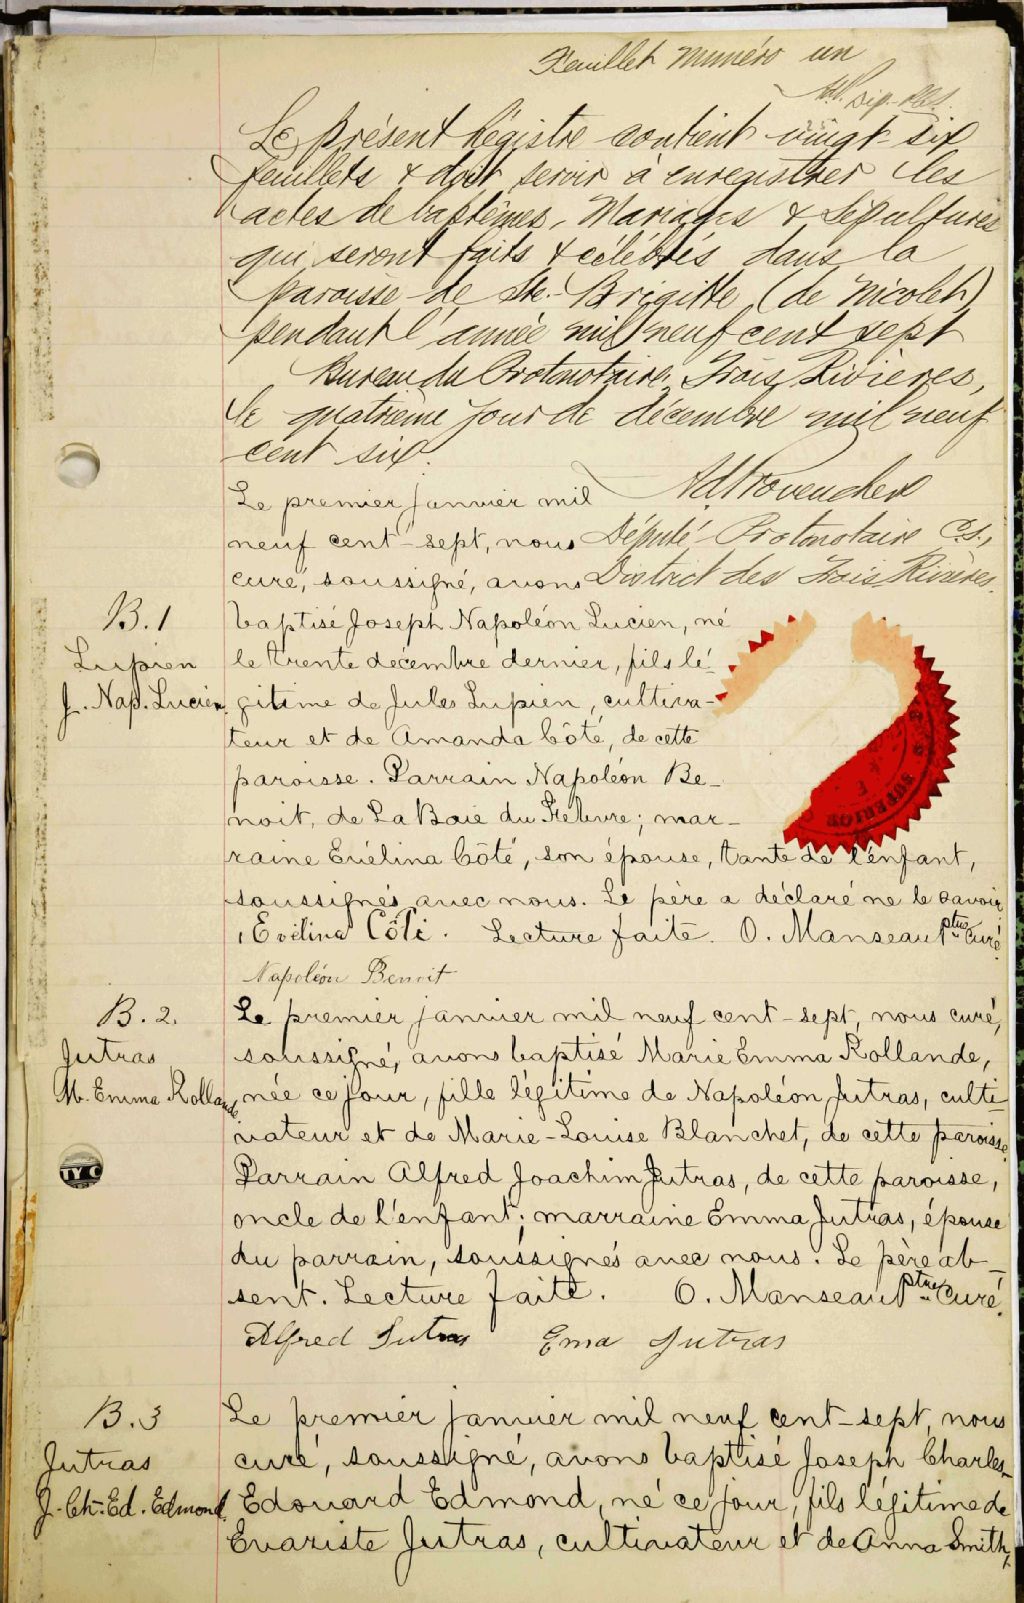 Feuillet Numéro un
Dép. Prot.
Le présent Régistre contient vingt-six
feuillets & doit servir à enregistrer les
actes de baptêmes, Mariages & Sépultures
qui seront faits & célébrés dans la
paroisse de Ste.-Brigitte (de Nicolet)
pendant l'année mil neuf cent sept
Bureau du Protonotaire, Trois Rivières,
le quatrième jour de décembre mil neuf
cent six.
Provencher
Député-Protonotaire C.S.,
District des Trois Rivières.
B.1
Lupien
J. Nap. Lucien
Le premier janvier mil
neuf cent-sept, nous
curé, soussigné, avons
baptisé Joseph Napoléon Lucien, né
le trente décembre dernier, fils lé-
gitime de Jules Lupien, cultiva-
teur et de Amanda Côté, de cette
paroisse. Parrain Napoléon Be-
noit, de La Baie du Febvre; mar-
raine Evélina Côté, son épouse, tante de l'enfant,
soussignés avec nous. Le père a déclaré ne le savoir
Evélina Côté. Lecture faite. O. Manseau Ptre Curé
Napoléon Benoit
SUPERIOR
B.2.
Jutras
M. Emma Rollande
Le premier janvier mil neuf cent-sept, nous curé,
soussigné, avons baptisé Marie Emma Rollande,
née ce jour, fille légitime de Napoléon Jutras, culti-
vateur et de Marie-Louise Blanchet, de cette paroisse.
Parrain Alfred Joachim Jutras, de cette paroisse,
oncle de l'enfant; marraine Emma Jutras, épouse
du parrain, soussignés avec nous. Le père ab-
sent. Lecture faite. O. Manseau Ptre Curé.
Alfred Jutras Ema Jutras
B.3
Jutras
J. Ch. Ed. Edmond.
Le premier janvier mil neuf cent-sept, nous
curé, soussigné, avons baptisé Joseph Charles-
Edouard Edmond, né ce jour, fils légitime de
Evariste Jutras, cultivateur et de Anna Smith,